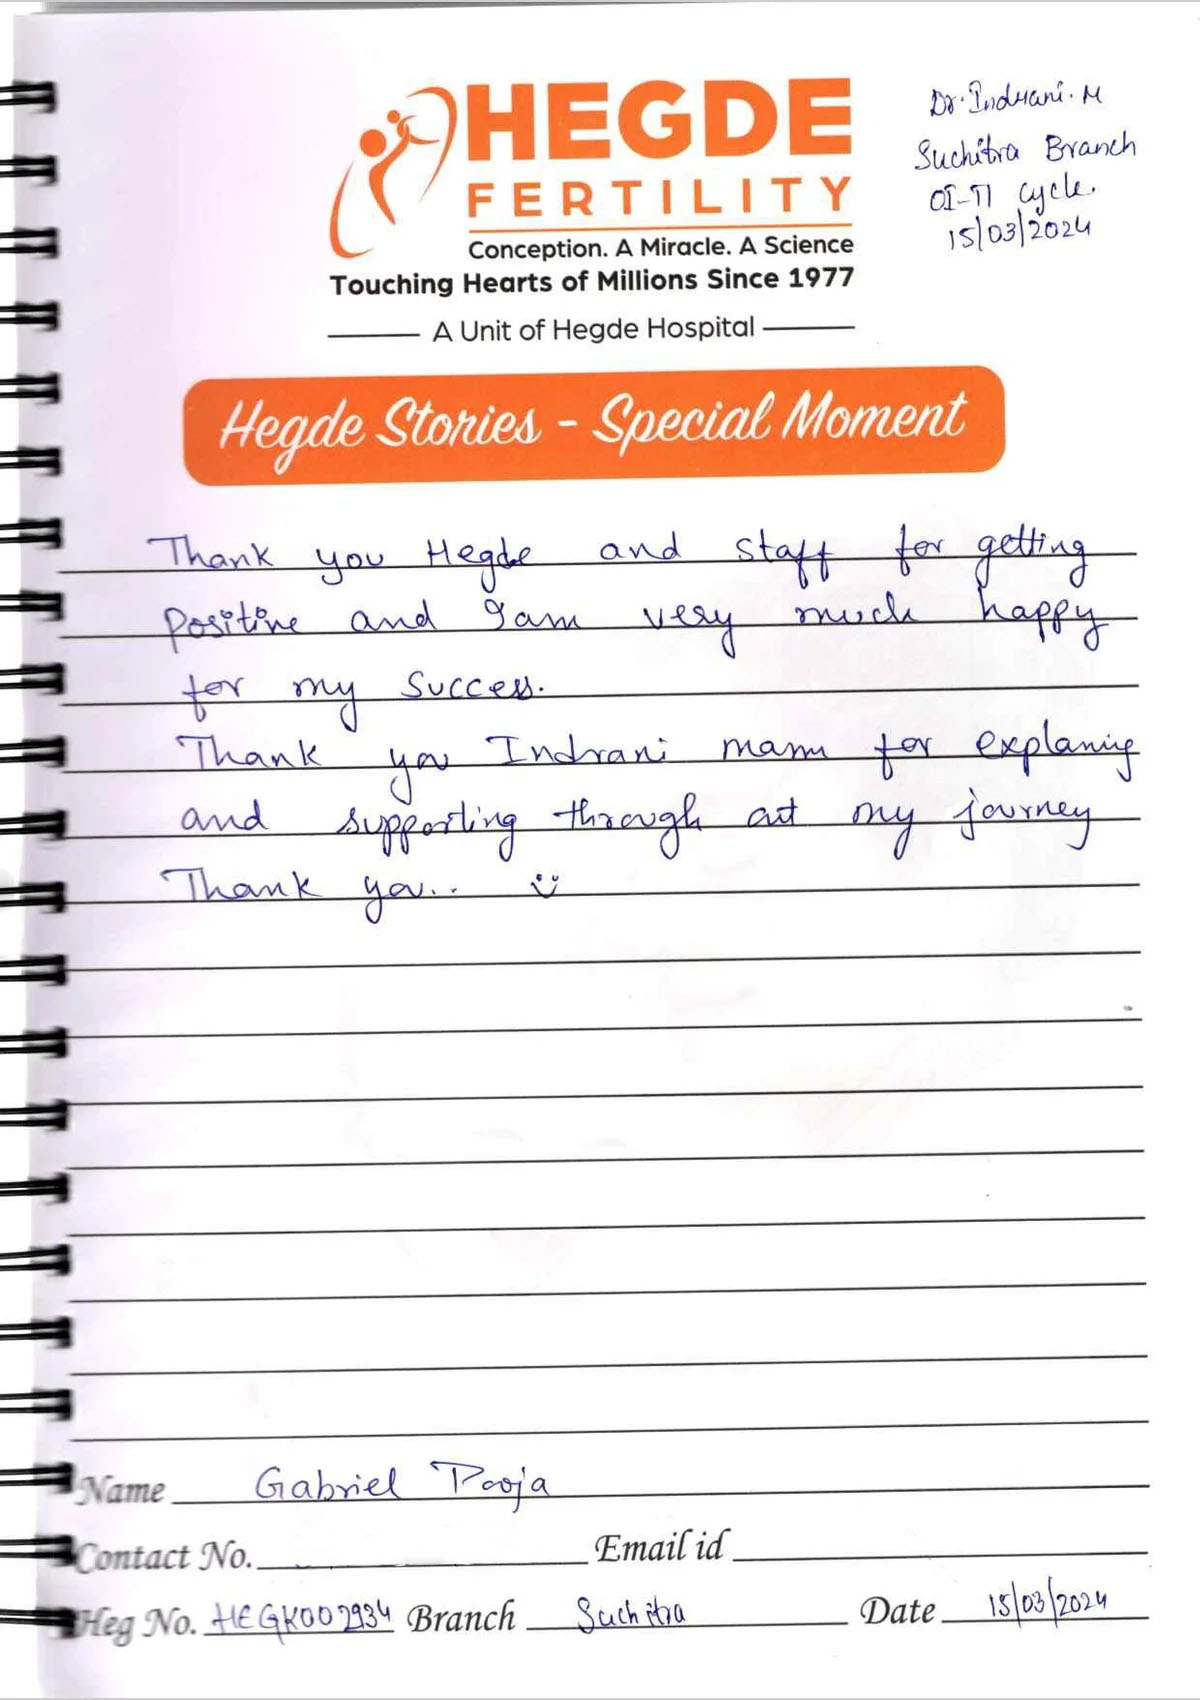 HEGDE
FERTILITY
Conception. A Miracle. A Science
Touching Hearts of Millions Since 1977
A Unit of Hegde Hospital
Dr. Indrani. M
Suchitra Branch
OI-TI cycle.
15/03/2024
Hegde Stories - Special Moment
Thank you Hegde and staff for getting
Positive and I am very much happy
for my success.
Thank you Indrani mam for explaning
and supporting through out my journey
Thank you.. :)
Name Gabriel Pooja
Contact No. Email id
Heg No. HEGK002934 Branch Suchitra Date 15/03/2024